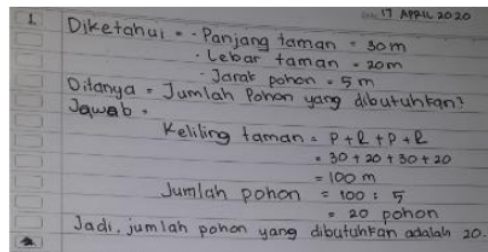 17 APRIL 2020
1. Diketahui = - Panjang taman = 30m
- Lebar taman = 20m
- Jarak pohon = 5 m
Ditanya = Jumlah Pohon yang dibutuhkan?
Jawab =
Keliling taman = P + l + P + l
= 30 + 20 + 30 + 20
= 100 m
Jumlah pohon = 100 : 5
= 20 pohon
Jadi, jumlah pohon yang dibutuhkan adalah 20.